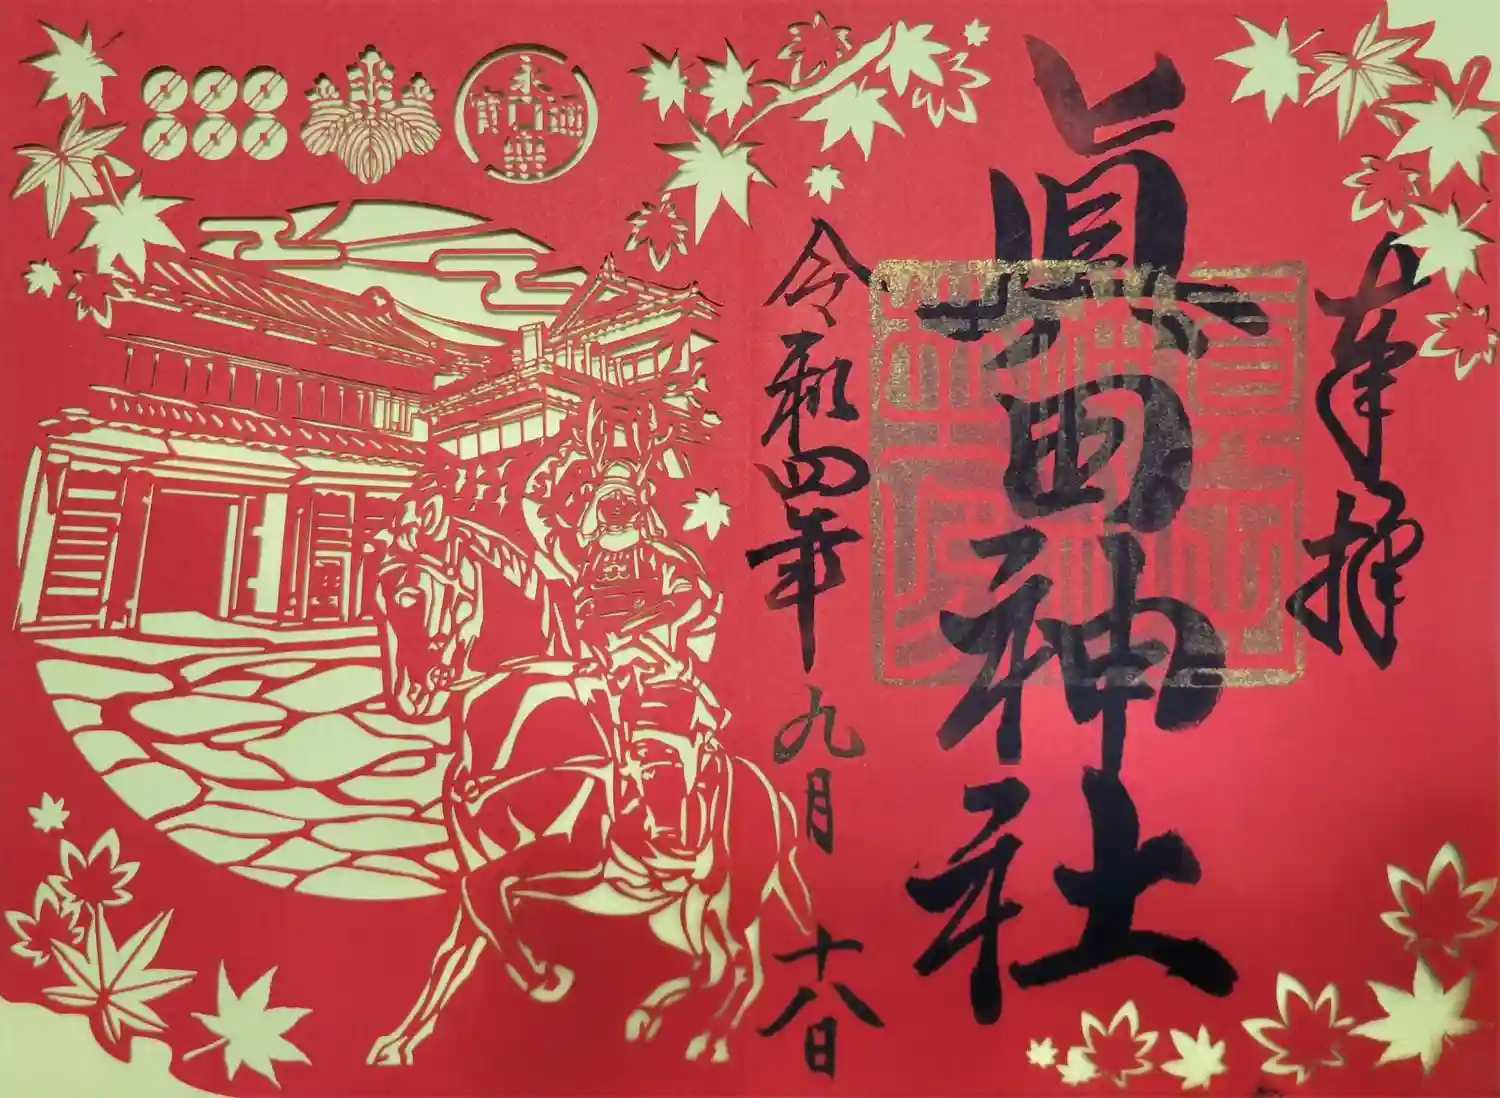 奉拝
眞田神社
令和四年九月十八日
永樂神寶